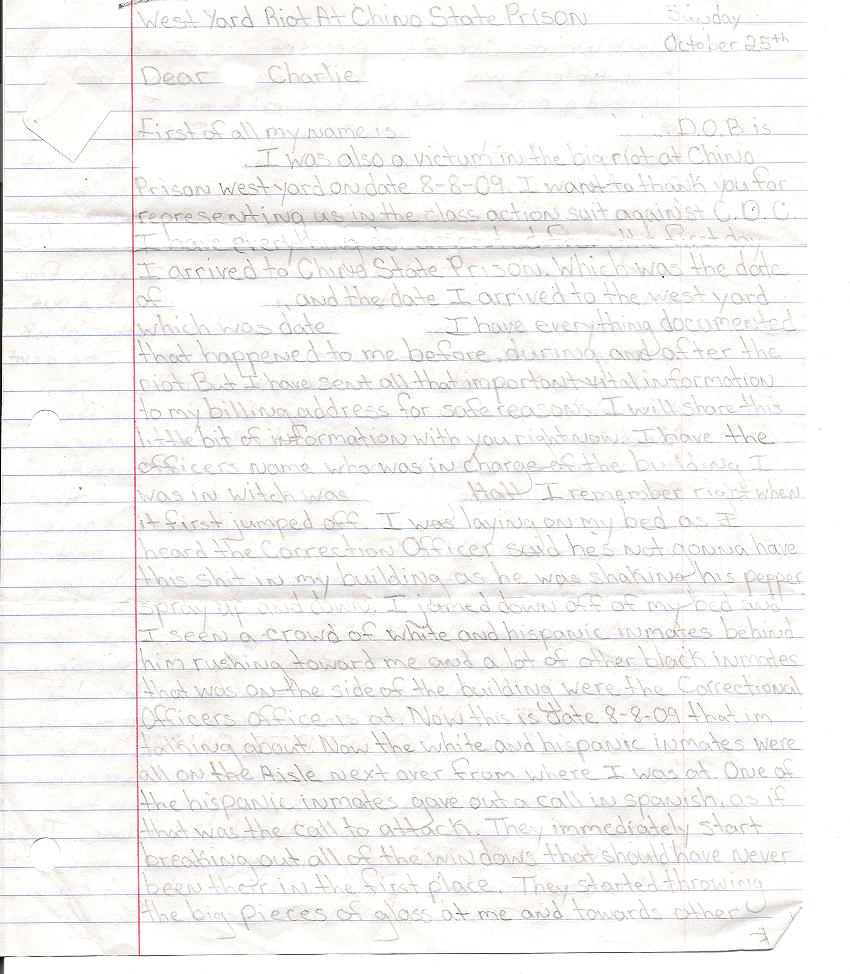 West Yard Riot At Chino State Prison
Sunday
October 25th
Dear Charlie
First of all my name is D.O.B is
. I was also a victum in the big riot at Chino
Prison west yard on date 8-8-09. I want to thank you for
representing us in the class action suit against C.D.C.
I have everything documented from the first day
I arrived to Chino State Prison. Which was the date
of , and the date I arrived to the west yard
which was date I have everything documented
that happened to me before, during, and after the
riot. But I have sent all that important vital information
to my billing address for safe reasons. I will share this
little bit of information with you right now. I have the
officers name who was in charge of the building I
was in witch was Hall I remember right when
it first jumped off. I was laying on my bed as I
heard the Correction Officer said he's not gonna have
this shit in my building as he was shaking his pepper
spray up and down. I jomed down off of my bed and
I seen a crowd of white and hispanic inmates behind
him rushing toward me and a lot of other black inmates
that was on the side of the building were the Correctional
Officers office is at. Now this is date 8-8-09 that im
talking about. Now the white and hispanic inmates were
all on the Aisle next over from where I was at. One of
the hispanic inmates gave out a call in spanish, as if
that was the call to attack. They immediately start
breaking out all of the windows that should have never
been their in the first place. They started throwing
the big pieces of glass at me and towards other